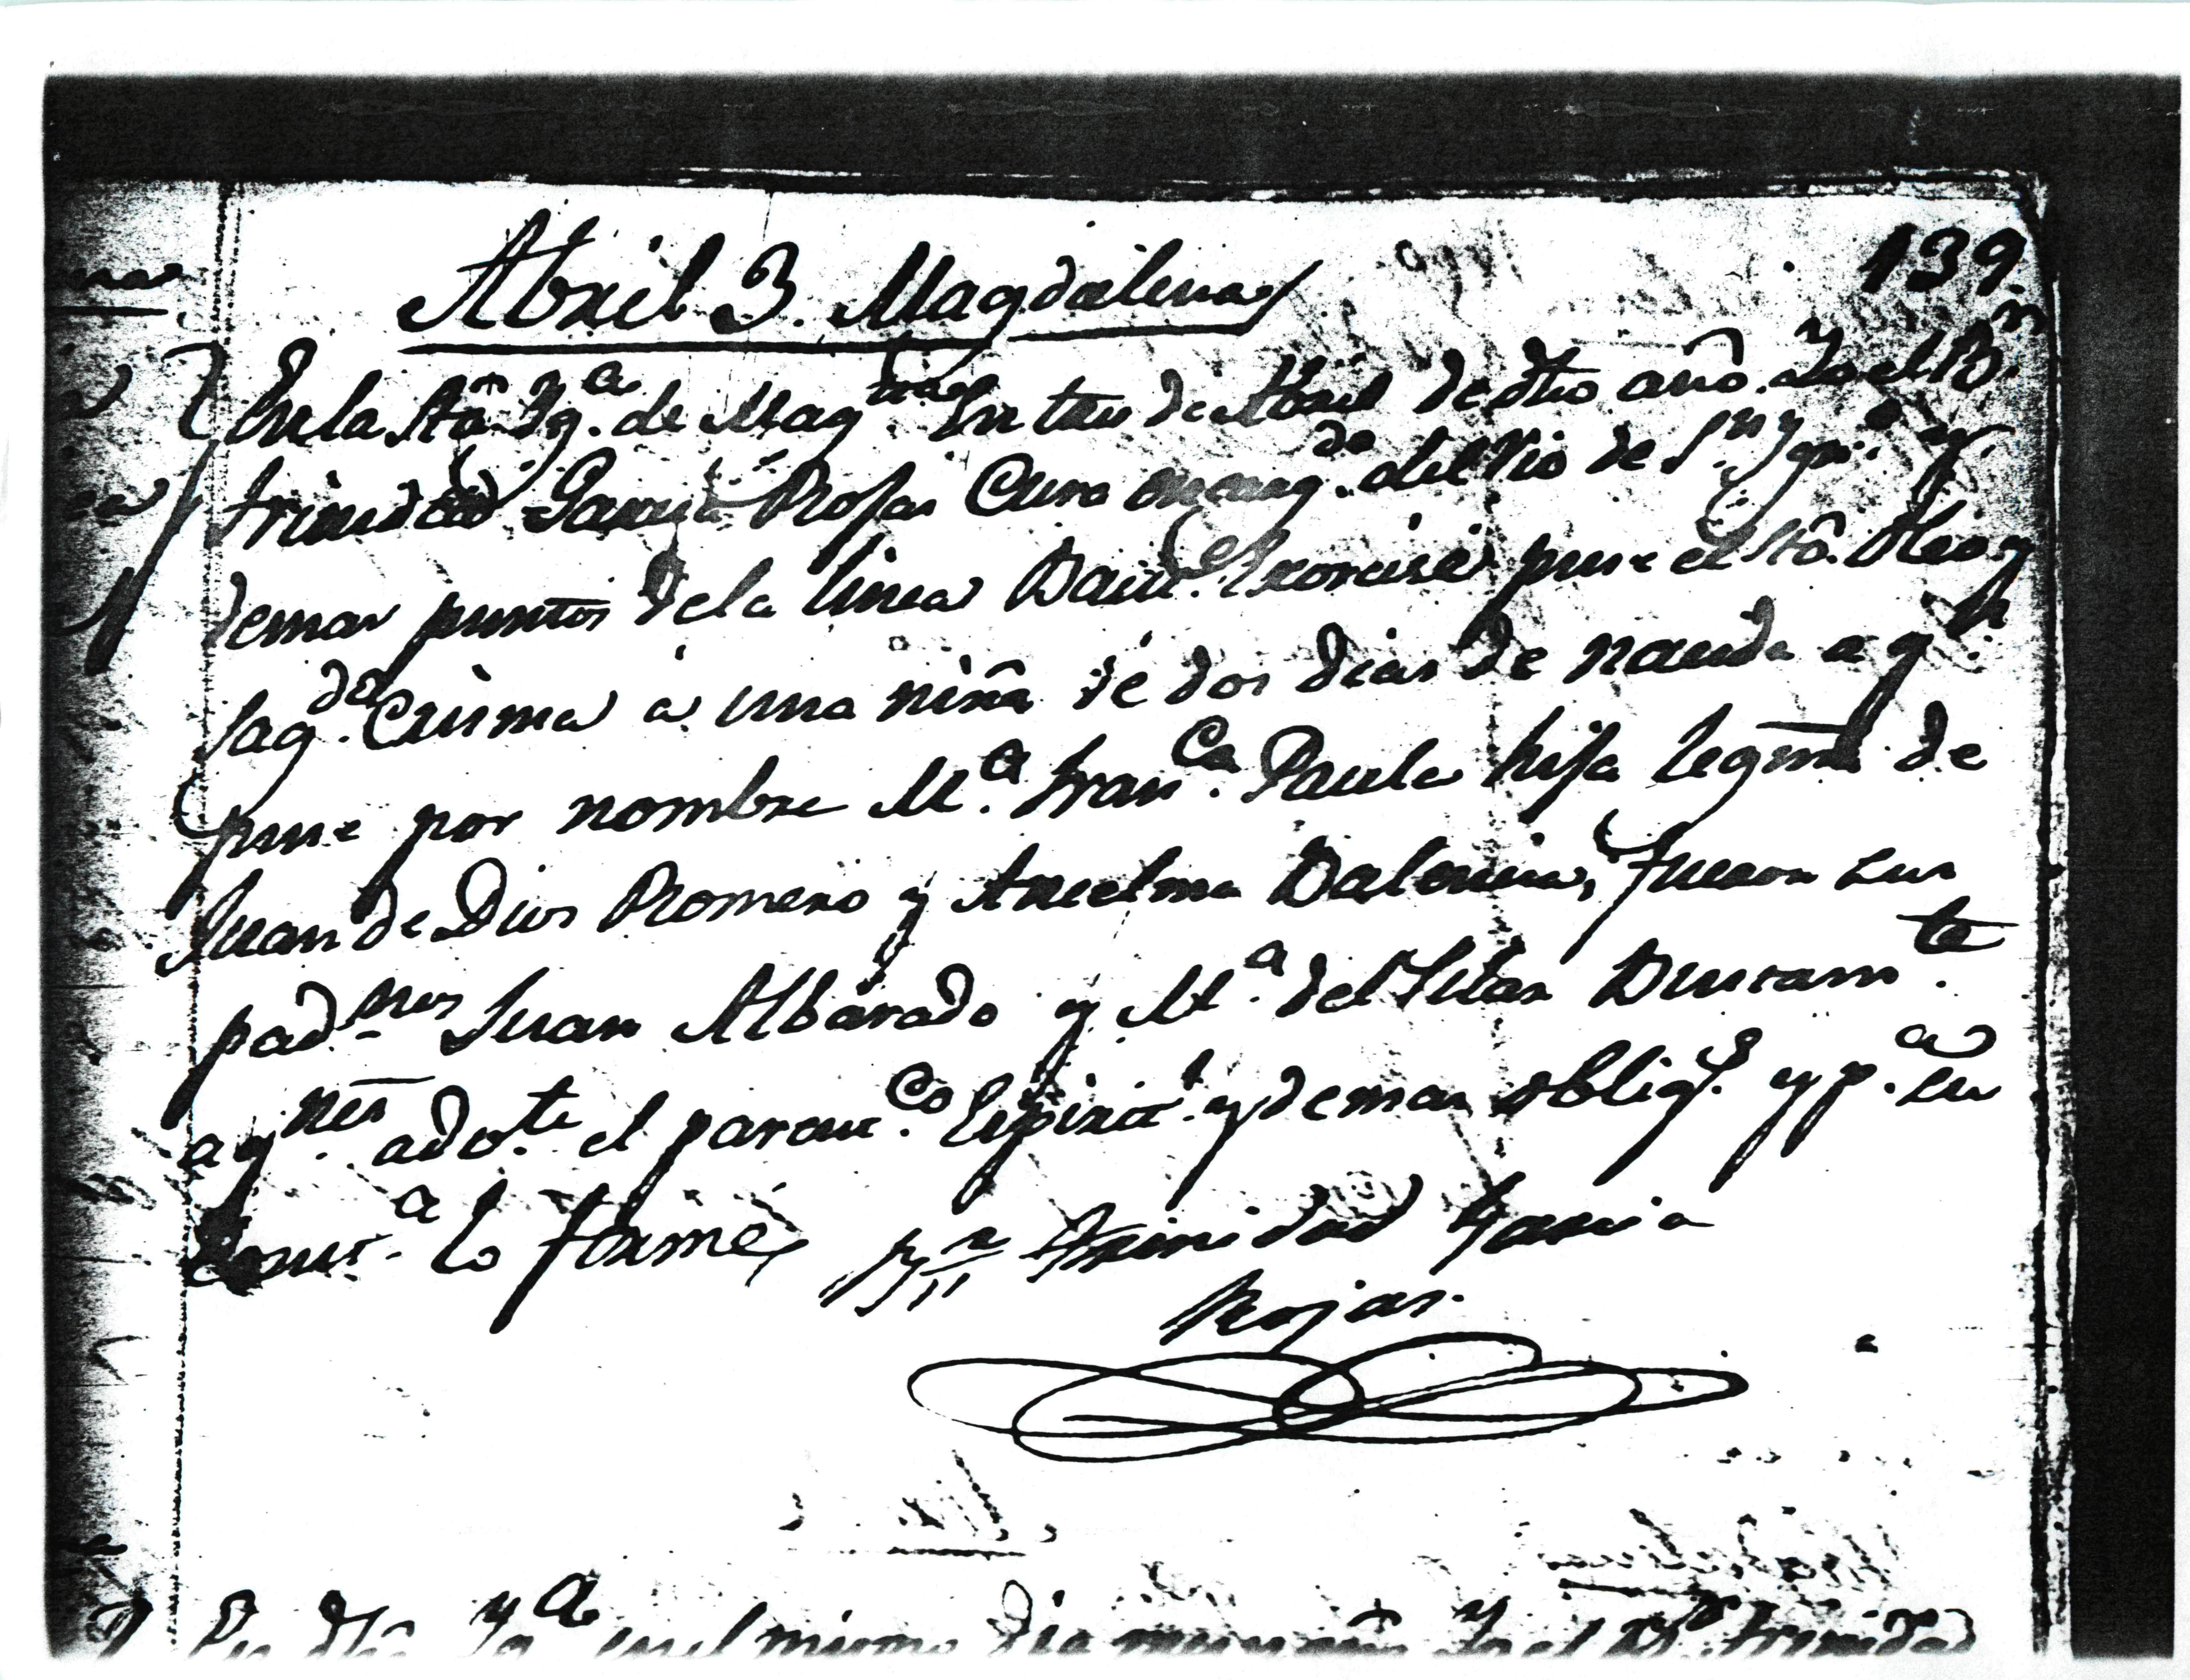 139
Abril 3. Magdalena
En la Sta. Yg.a de Mag.na En tres de Abril de dho año. Yo el B.r
trinidad Garcia Rojas Cura encarg.do del Rio de S.n Ygn.o y
demas puntos de la linea Baut.e Exorcisé puse el Sto. Oleo y
Sag.do Crisma á una niña de dos dias de nacida a q.n
puse por nombre M.a Fran.ca Paula hija legma. de
Juan de Dios Romero y Anselma Balencia, fueron sus
pad.nos Juan Albarado y M.a del Pilar Bustam.te
a q.nes adv.te el parent.co Espirit.l y demas oblig.s y p.a su
const.a lo firmé, B.r Trinidad Garcia
Rojas.
En dha Yg.a en el mismo dia mes y año Yo el B.r trinidad